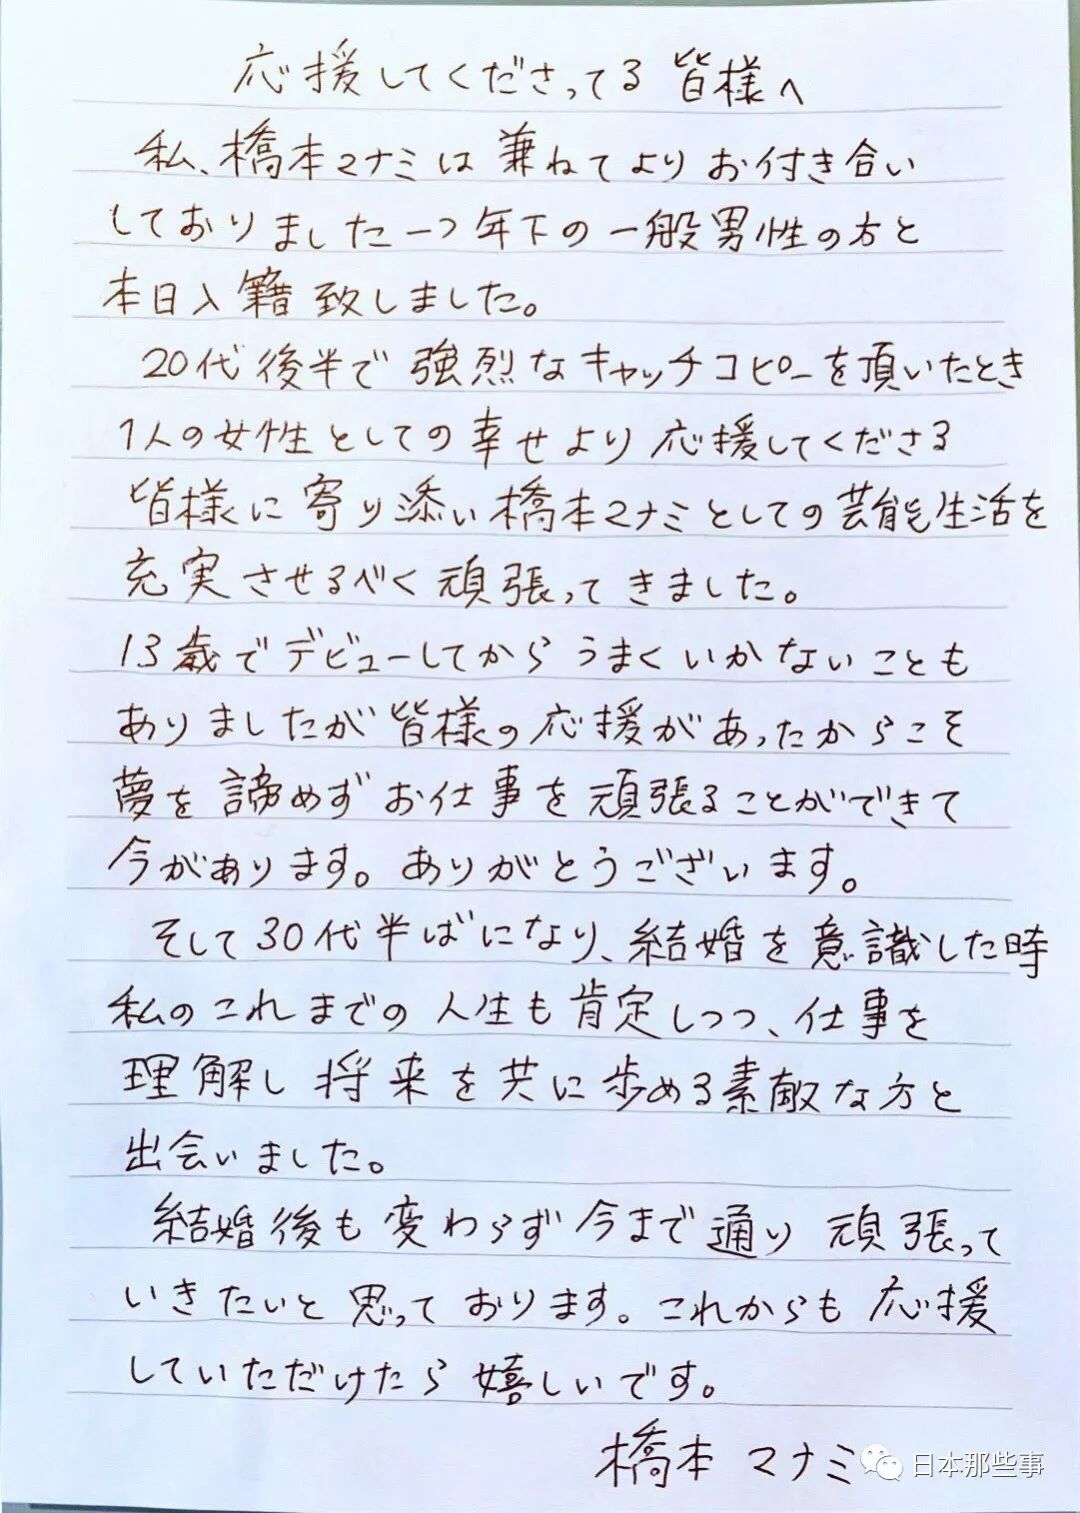 応援してくださってる皆様へ
私、橋本マナミは兼ねてよりお付き合い
しておりました一つ年下の一般男性の方と
本日入籍致しました。
20代後半で強烈なキャッチコピーを頂いたとき
1人の女性としての幸せより応援してくださる
皆様に寄り添い橋本マナミとしての芸能生活を
充実させるべく頑張ってきました。
13歳でデビューしてからうまくいかないことも
ありましたが皆様の応援があったからこそ
夢を諦めずお仕事を頑張ることができて
今があります。ありがとうございます。
そして30代半ばになり、結婚を意識した時
私のこれまでの人生も肯定しつつ、仕事を
理解し将来を共に歩める素敵な方と
出会いました。
結婚後も変わらず今まで通り頑張って
いきたいと思っております。これからも応援
していただけたら嬉しいです。
橋本マナミ
日本那些事